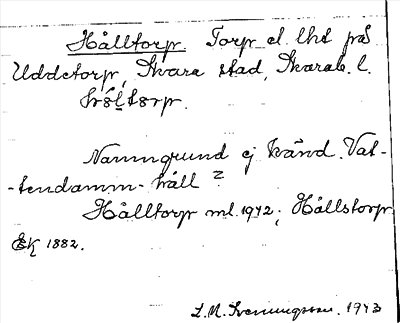 Hålltorp. Torp el. lht på
Uddetorp, Skara stad, Skarab. l.
hɔ́ltɔrp.
Namngrund ej känd. Vat-
-tendamm- håll?
Hålltorp ml. 1942; Hållstorp
EK 1882.
L. M. Svenungsson. 1943